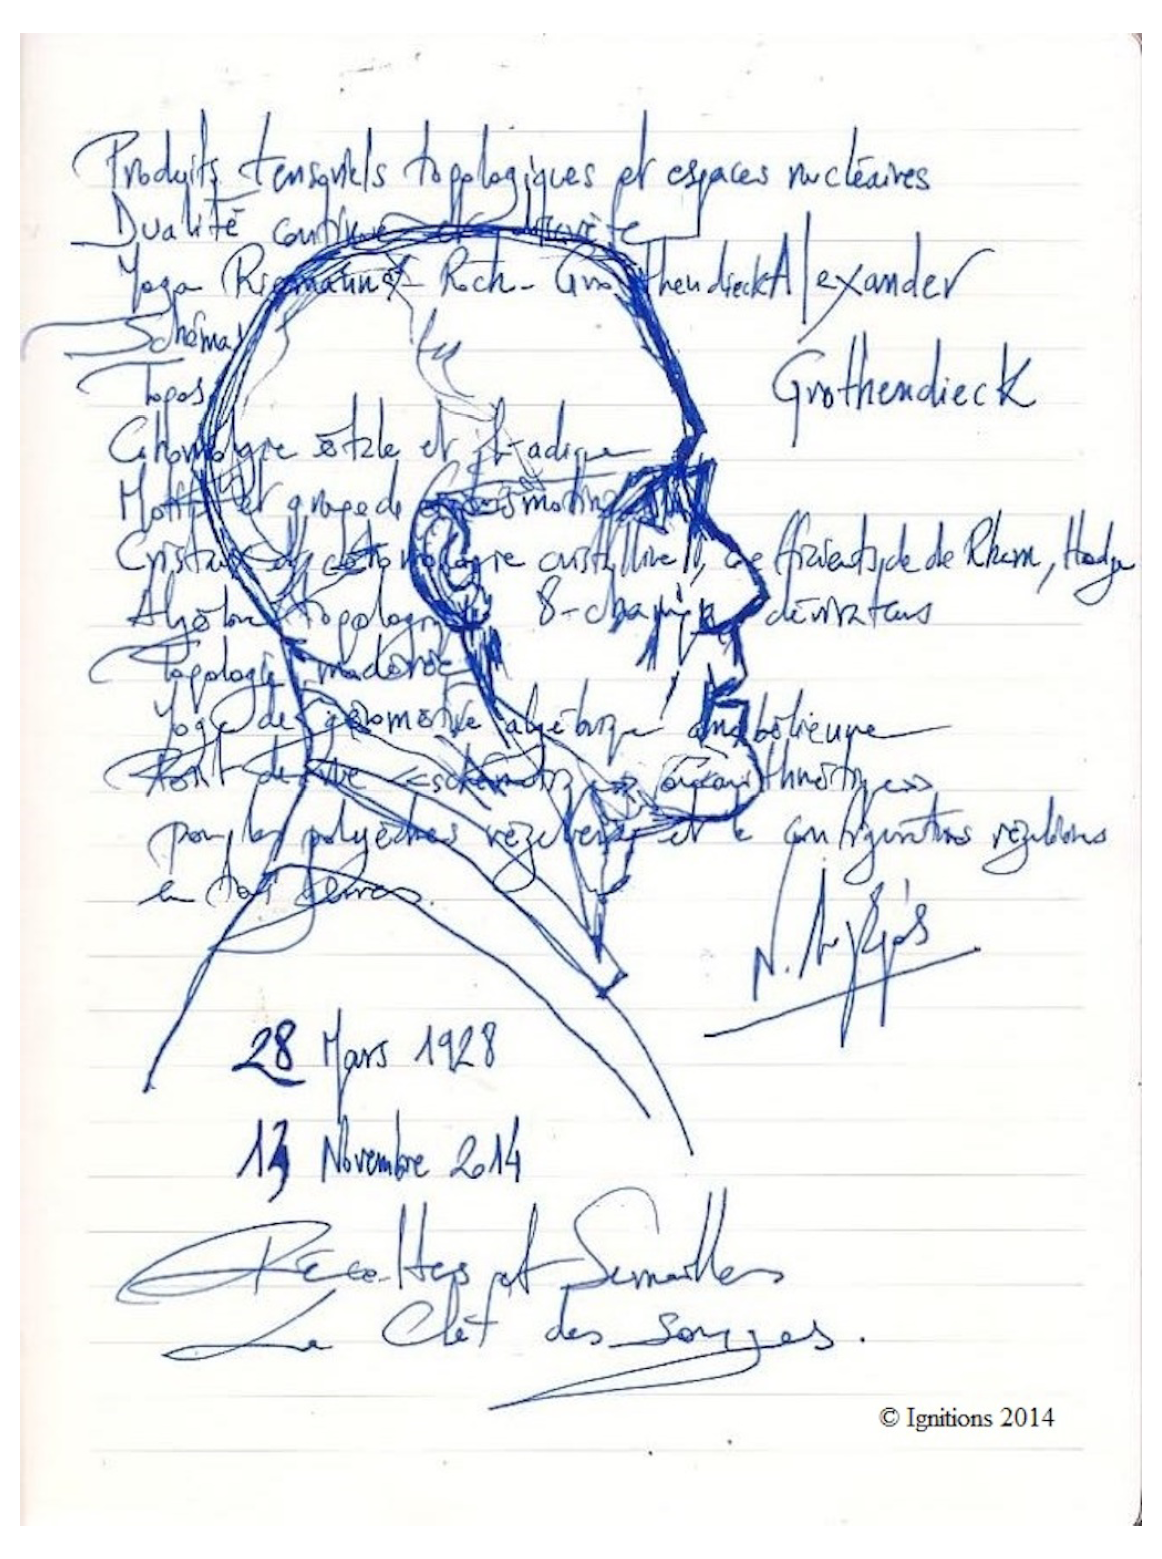 Produits tensoriels topologiques et espaces nucléaires
Dualité continue et discrète
Yoga Riemann - Roch - Grothendieck
Alexander
Schéma
Topos
Grothendieck
Cohomologie étale et l-adique
Motifs et groupe de
Cristaux et cohomologie cristalline, coefficients de de Rham, Hodge
Algèbre topologique
dérivateurs
Topologie modérée
Yoga de géométrie algébrique anabélienne
Point de vue
pour les polyèdres réguliers et le configurations régulières
en
N.
28 Mars 1928
13 Novembre 2014
Récoltes et Semailles
La Clef des Songes.
© Ignitions 2014